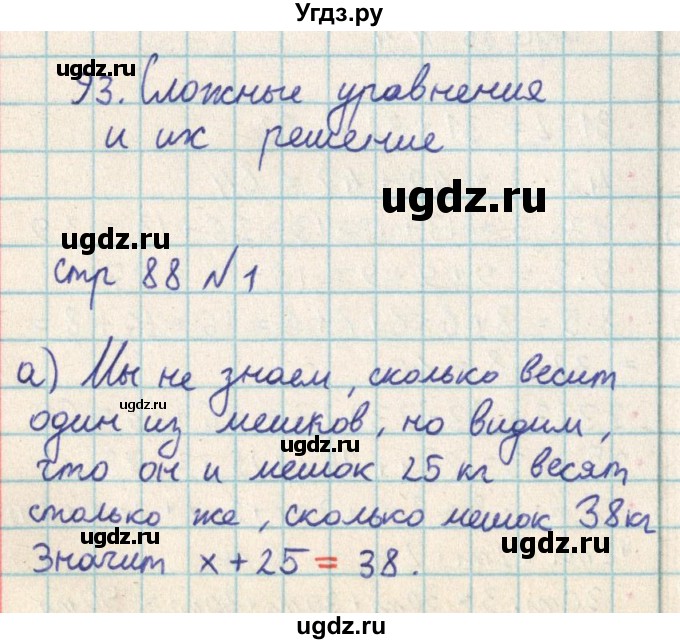 Угдз.ру
ugdz.ru
93. Сложные уравнения
и их решение
ugdz.ru
ugdz.ru
стр 88 №1
а) Мы не знаем, сколько весит
ugdz.ru
один из мешков, но видим,
ugdz.ru
что он и мешок 25 кг весят
столько же, сколько мешок 38 кг
ugdz.ru
Значит x + 25 = 38.